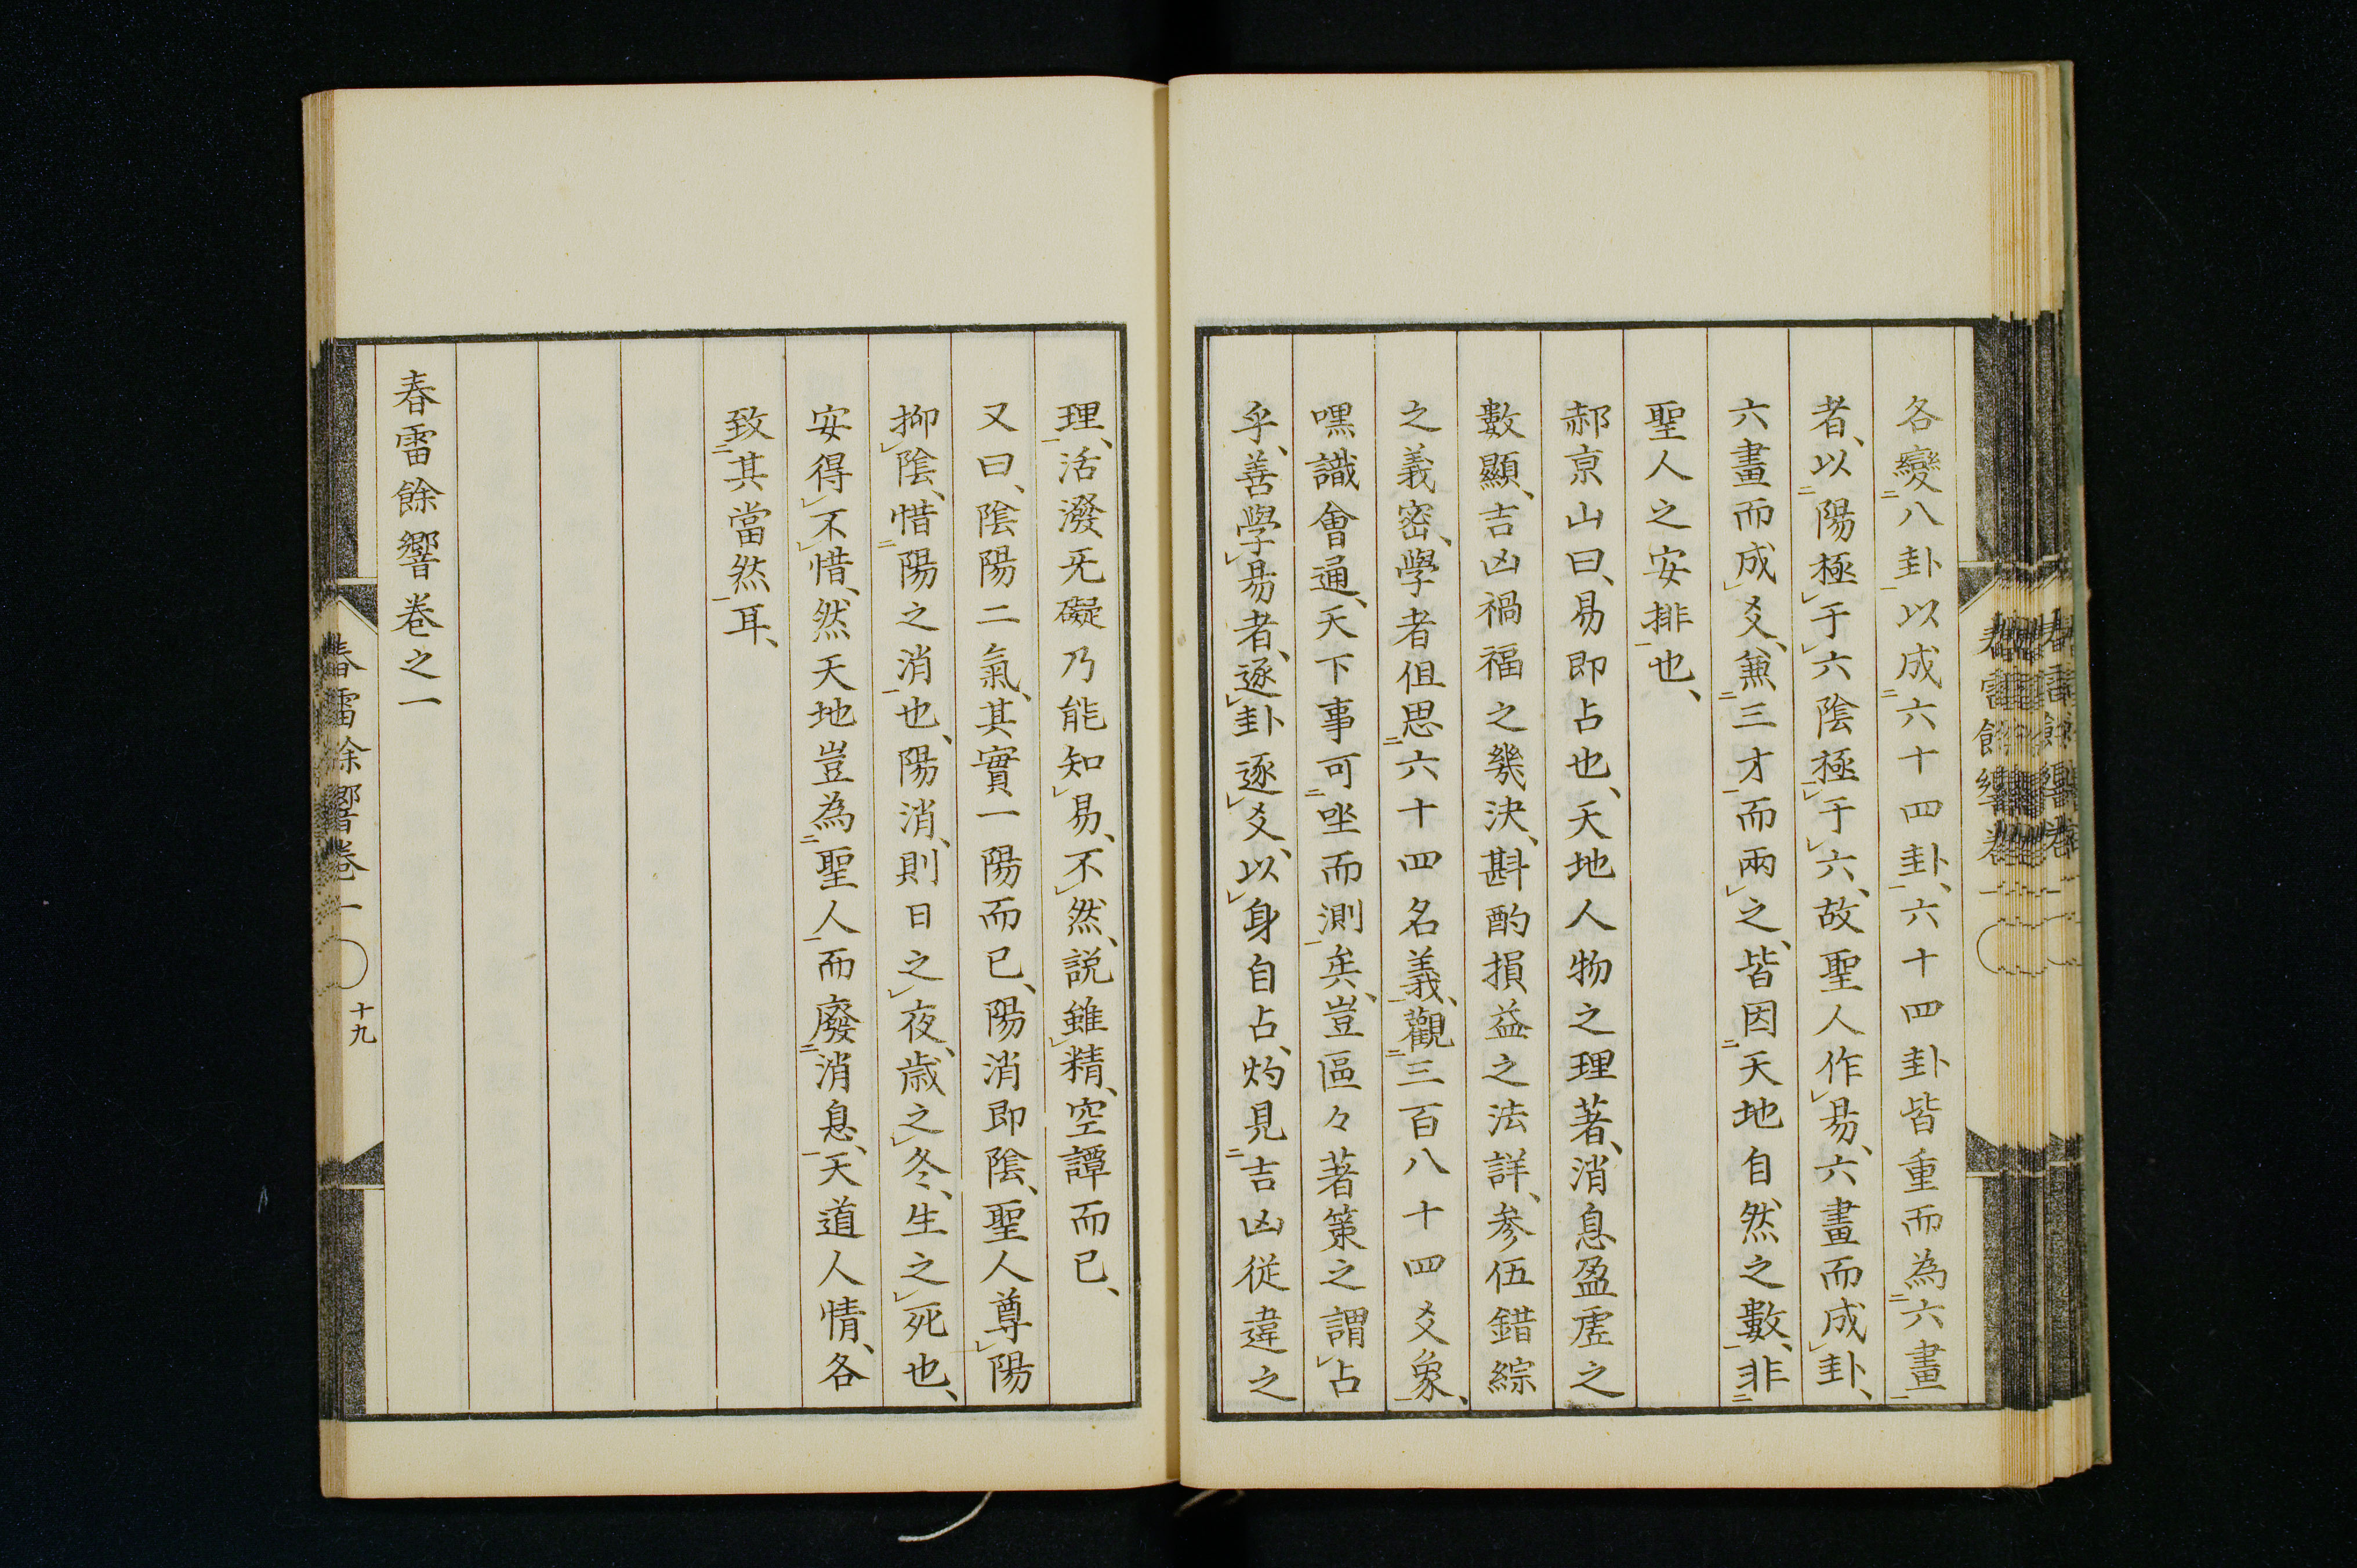 各變二八卦一以成二六十四卦一、六十四卦皆重而為二六畫一
者、以二陽極㆑于㆑六陰極一㆑于㆑六、故聖人作㆑易、六畫而成㆑卦、
六畫而成㆑爻、兼二三才一而兩㆑之、皆因二天地自然之數一、非二
聖人之安排一也、
郝京山曰、易即占也、天地人物之理著、消息盈虛之
數顯、吉凶禍福之幾決、斟酌損益之法詳、參伍錯綜
之義密、學者但思二六十四名義一、觀二三百八十四爻象一、
嘿識會通、天下事可二坐而測一矣、豈區々著策之謂㆑占
乎、善學㆑易者、逐㆑卦逐㆑爻、以㆑身自占、灼見二吉凶從違之
理一、活潑旡礙乃能知㆑易、不㆑然、說雖㆑精、空譚而已、
又曰、陰陽二氣、其實一陽而已、陽消即陰、聖人尊㆑陽
抑㆑陰、惜二陽之消一也、陽消、則日之㆑夜、歳之㆑冬、生之㆑死也、
安得㆑不㆑惜、然天地豈為二聖人一而廢二消息一、天道人情、各
致二其當然一耳、
春雷餘響卷之一
春雷餘響卷一
十九